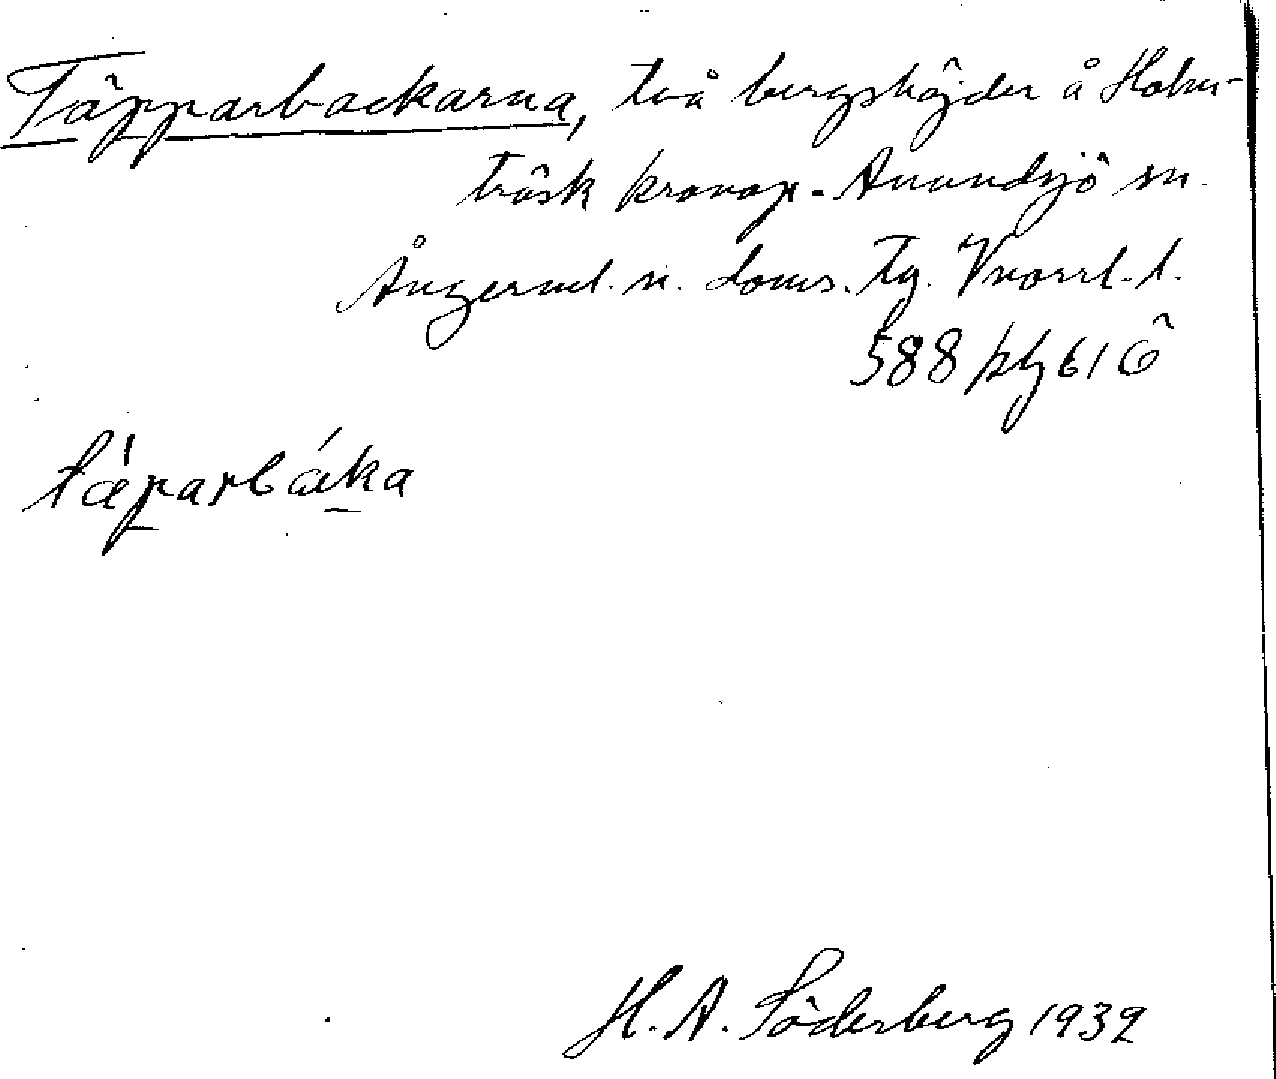 Täpparbackarna, två bergshöjder å Holm-
träsk kronop. Anundsjö sn.
Ångerml. n. doms. Tg. Vnorrl. l.
588 khj 61 Ö
täparbáka
H. A. Söderberg 1932